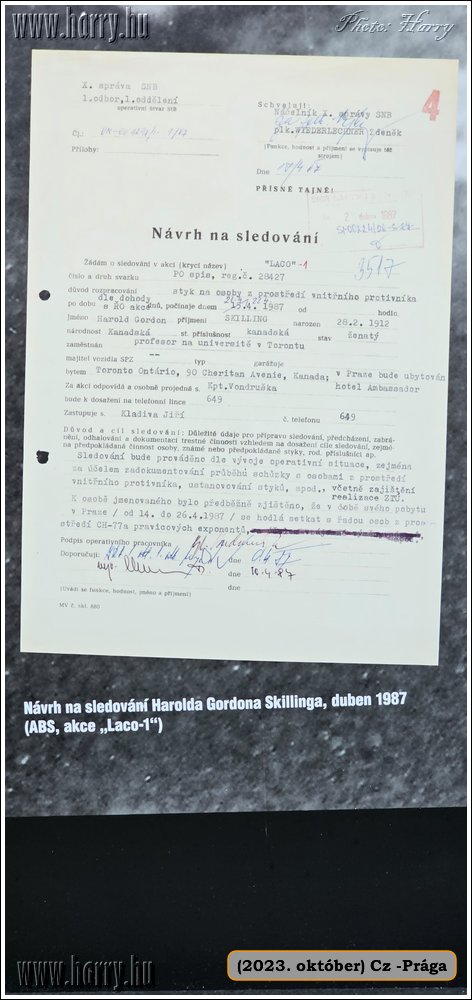 www.horry.hu
Photo: Horry
X. správa SNB
1.odbor,1.oddělení
operativní útvar StB
Čj.:
Přílohy:
4
Schvaluji:
Náčelník X. správy SNB
plk.WIEDERLECHNER Zdeněk
(Funkce, hodnost a příjmení se vypisuje též
strojem)
Dne
PŘÍSNĚ TAJNÉ!
Návrh na sledování
3517
Žádám o sledování v akci (krycí název) "LACO"-1
číslo a druh svazku PO spis, reg.č. 28427
důvod rozpracování styk na osoby z prostředí vnitřního protivníka
dle dohody
po dobu s RO akce dnů, počínaje dnem 13.4.1987 od hodin.
Jméno Harold Gordon příjmení SKILLING narozen 28.2. 1912
národnost Kanadská st. příslušnost kanadská stav ženatý
zaměstnán profesor na université v Torontu
majitel vozidla SPZ -- typ garážuje
bytem Toronto Ontário, 90 Cheritan Avenie, Kanada; v Praze bude ubytován
Za akci odpovídá a osobně projedná s Kpt.Vondruška hotel Ambassador
bude k dosažení na telefonní lince 649
Zastupuje s. Kladiva Jiří č. telefonu 649
Důvod a cíl sledování: Důležité údaje pro přípravu sledování, předcházení, zabrá-
nění, odhalování a dokumentaci trestné činnosti vzhledem na dosažení cíle sledování, zejmé-
na předpokládaná činnost osoby, známé nebo předpokládané styky, rod. příslušníci ap.
Sledování bude prováděno dle vývoje operativní situace, zejména
za účelem zadokumentování průběhu schůzky s osobami z prostředí
vnitřního protivníka, ustanovování styků, apod., včetně zajištění
realizace ZTÚ.
K osobě jmenovaného bylo předběžně zjištěno, že v době svého pobytu
v Praze / od 14. do 26.4.1987 / se hodlá setkat s řadou osob z pros-
tředí CH-77a pravicových exponentů,
Podpis operativního pracovníka
Doporučuji: dne
dne 10.4.87
dne
(Uvádí se funkce, hodnost, jméno a příjmení)
MV č. skl. 880
Návrh na sledování Harolda Gordona Skillinga, duben 1987
(ABS, akce „Laco-1“)
www.horry.hu
(2023. október) Cz -Prága